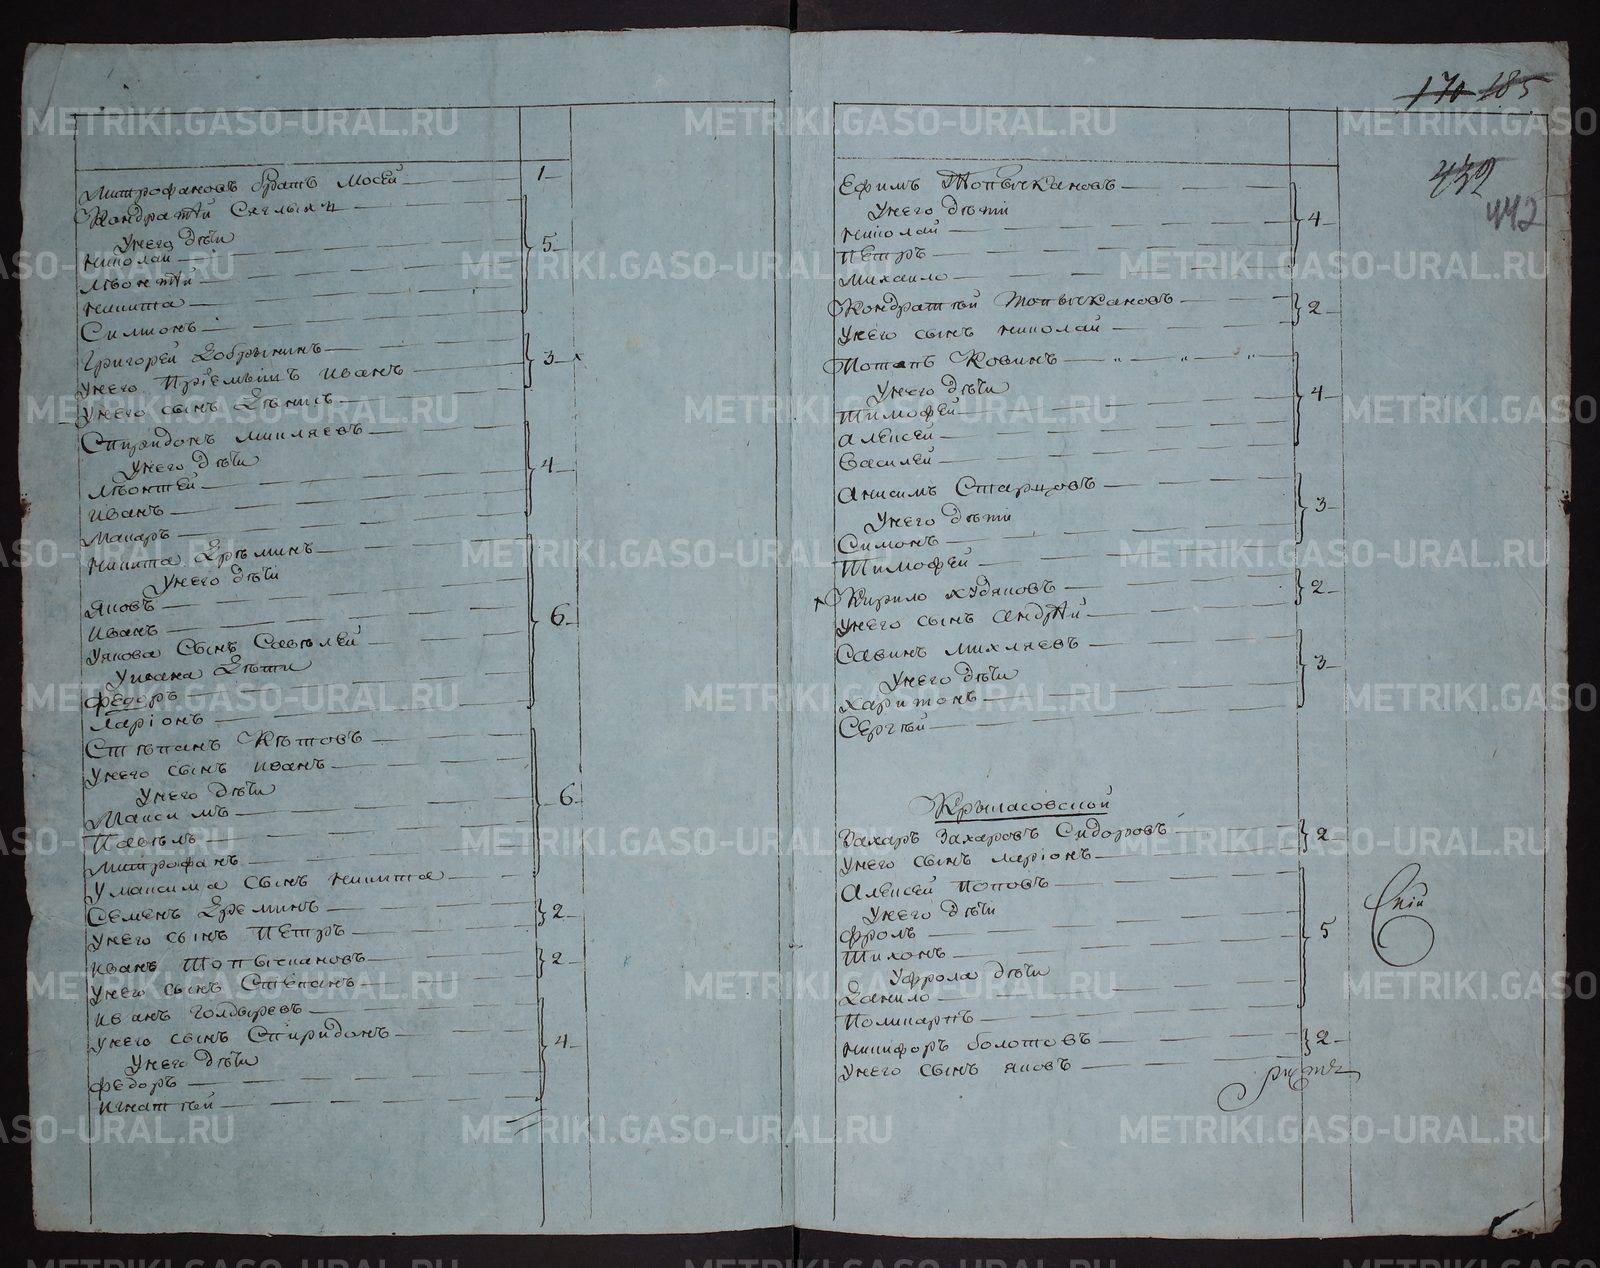 Митрофановъ братъ Мосей 1
Кондратий
Унего дѣти
Николай
Лѣонтий 5
Никита
Симионъ
Григорей Добрынинъ
Унего Приемышъ Иванъ 3
Унего сынъ Дѣнисъ
Спиридонъ Михляевъ
Унего дѣти
Лѣонтей 4
Иванъ
Макаръ
Никита Ерѣминъ
Унего дѣти
Яковъ
Иванъ 6
Уякова Сынъ Савѣлей
Уивана Дѣти
Федоръ
Ларіонъ
Стѣпанъ Кѣтовъ
Унего сынъ Иванъ
Унего дѣти
Максимъ 6
Павѣлъ
Митрофанъ
Умаксима Сынъ Никита
Семенъ Ереминъ 2
Унего сынъ Петръ
Иванъ Топычкановъ 2
Унего сынъ Степанъ
Иванъ Голдыревъ
Унего сынъ Спиридонъ
Унего дѣти 4
Федоръ
Игнатьй
170 185
439
442
Ефимъ Топычкановъ
Унего дѣти 4
Николай
Петръ
Михаило
Кондратьй Топычкановъ 2
Унего сынъ Николай
Потапъ Ковинъ
Унего дѣти
Тимофей 4
Алексей
Василей
Анисимъ Старцовъ
Унего дѣти 3
Симонъ
Тимофей
Кирило Худяковъ 2
Унего сынъ
Савинъ Михляевъ
Унего дѣти 3
Харитонъ
Сергѣй
Крыласовской
Захаръ Захаровъ Сидоровъ 2
Унего сынъ Ларіонъ
Алексей Поповъ
Унего дѣти
Фролъ 5
Тихонъ
Уфрола дѣти
Данило
Поликарпъ
Никифоръ Болотовъ 2
Унего сынъ Яковъ
METRIKI.GASO-URAL.RU